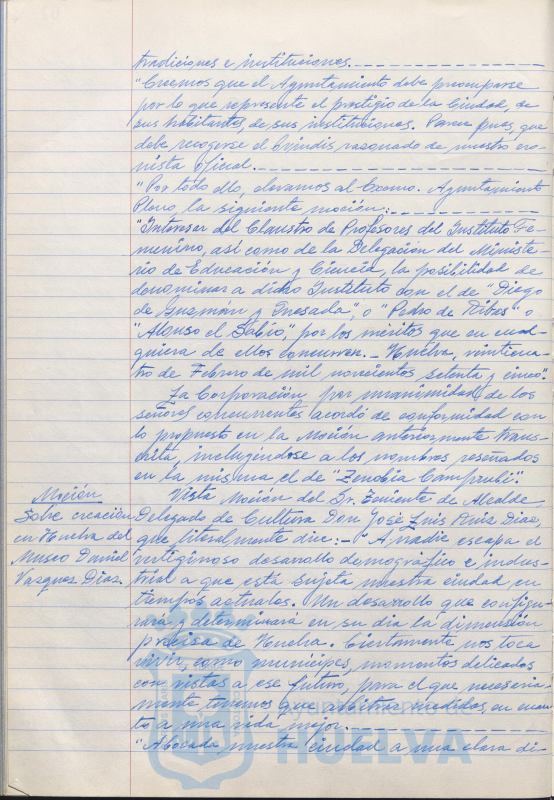 tradiciones e instituciones.
"Creemos que el Ayuntamiento debe preocuparse
por lo que represente el prestigio de la Ciudad, de
sus habitantes, de sus instituciones. Parece pues, que
debe recogerse el brindis razonado de nuestro cro-
nista oficial.
"Por todo ello, elevamos al Excmo. Ayuntamiento
Pleno, la siguiente moción:
"Interesar del Claustro de Profesores del Instituto Fe-
menino, así como de la Delegación del Ministe-
rio de Educación y Ciencia, la posibilidad de
denominar a dicho Instituto con el de "Diego
de Guzmán y Quesada", o "Pedro de Ribes" o
"Alonso el Sabio", por los méritos que en cual-
quiera de ellos concurren.- Huelva, veinticua-
tro de Febrero de mil novecientos setenta y cinco".
La Corporación, por unanimidad de los
señores concurrentes acordó de conformidad con
lo propuesto en la Moción anteriormente trans-
crita, incluyéndose a los nombres reseñados
en la misma el de "Zenobia Camprubí".
Moción
sobre creación
en Huelva del
Museo Daniel
Vazquez Diaz.
Vista Moción del Sr. Teniente de Alcalde,
Delegado de Cultura Don José Luis Ruiz Diaz,
que literalmente dice:- "A nadie escapa el
vertiginoso desarrollo demográfico e indus-
trial a que está sujeta nuestra ciudad en
tiempos actuales. Un desarrollo que configu-
rará y determinará en su día la dimensión
precisa de Huelva. Ciertamente nos toca
vivir, como munícipes, momentos delicados
con vistas a ese futuro, para el que necesaria-
mente tenemos que arbitrar medidas en cuan-
to a una vida mejor.
"Abocada nuestra ciudad a una clara di-
HUELVA